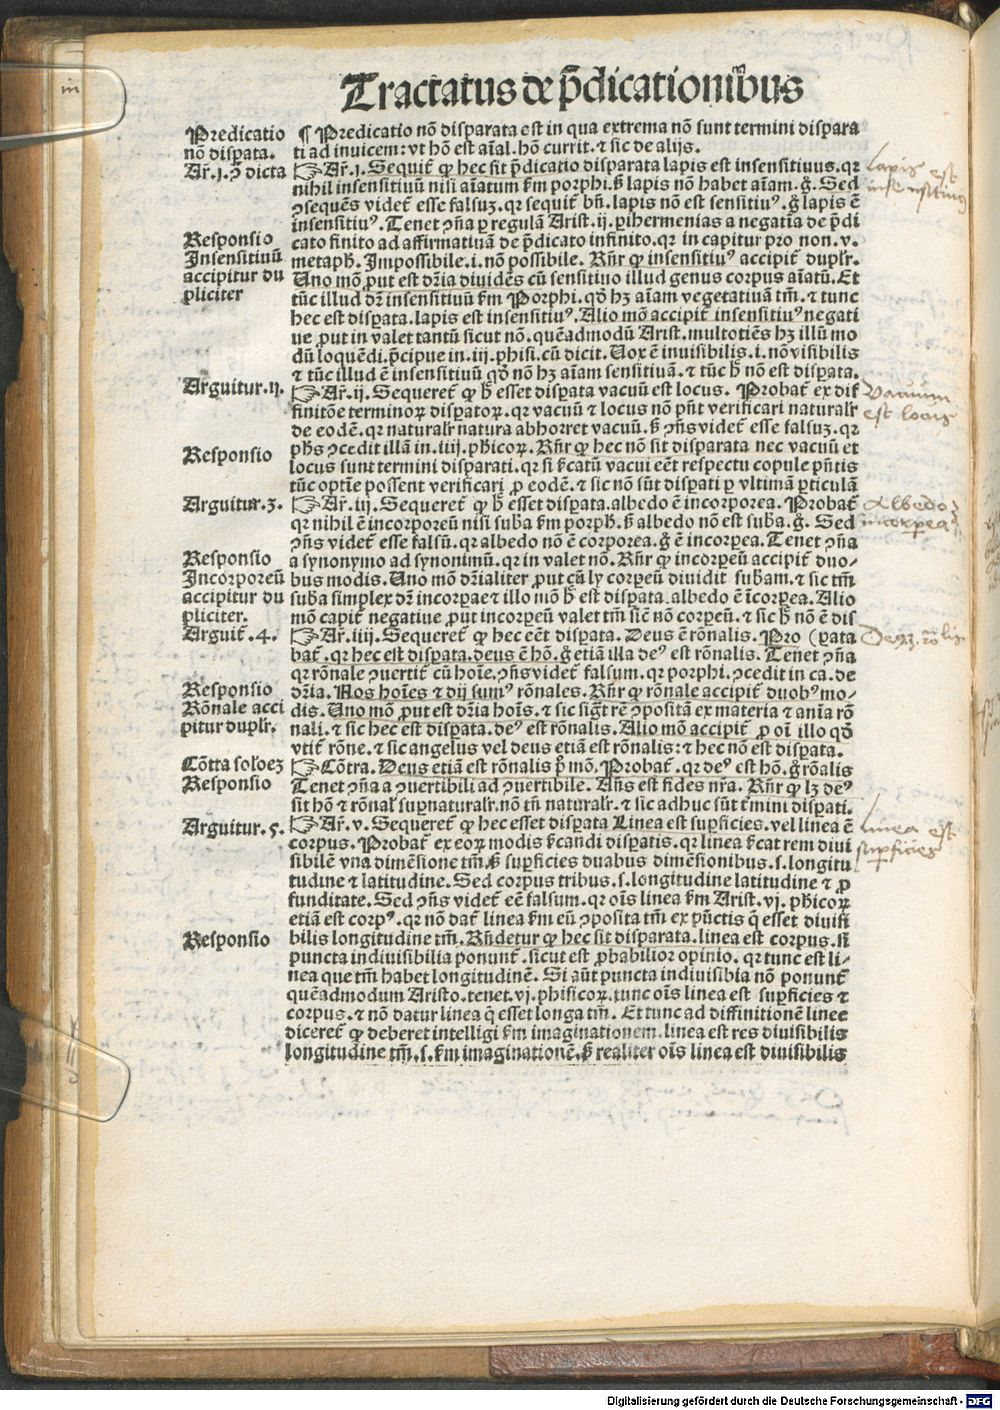 Tractatus de p̄dicationibus
Predicatio
nō disꝑata.
Ar̄.1.ꝯ dicta
Responsio
Insensitiuū
accipitur du
pliciter
Arguitur.ij.
Responsio
Arguitur.3.
Responsio
Incorporeū
accipitur du
pliciter.
Arguit̄.4.
Responsio
Rōnale acci
pitur duplr̄.
Cōtra soloez
Responsio
Arguitur.5.
Responsio
¶ Predicatio nō disparata est in qua extrema nō sunt termini dispara
ti ad inuicem: vt hō est aīal. hō currit. ⁊ sic de alijs.
☞ Ar̄.1. Sequit̄ ꝙ hec sit p̄dicatio disparata lapis est insensitiuus. qr
nihil insensitiuū nisi aīatum f̄m porphi. s̄ lapis nō habet aīam. g̊. Sed
ꝯsequēs videt̄ esse falsuz. qr sequit̄ bn̄. lapis nō est sensitiuꝰ. g̊ lapis ē
insensitiuꝰ. Tenet ꝯn̄a ꝑ regulā Arist. ij. ꝑihermenias a negatīa de p̄di
cato finito ad affirmatiuā de p̄dicato infinito. qr in capitur pro non. v.
metaph. Impossibile. i. nō possibile. Rn̄r ꝙ insensitiuꝰ accipit̄ duplr̄.
Uno mō ꝓut est dr̄ia diuidēs cū sensitiuo illud genus corpus aīatū. Et
tūc illud dr̄ insensitiuū f̄m Porphi. qd̄ hz aīam vegetatiuā tm̄. ⁊ tunc
hec est disꝑata. lapis est insensitiuꝰ. Alio mō accipit̄ insensitiuꝰ negati
ue ꝓut in valet tantū sicut nō. quēadmodū Arist. multotiēs hz illū mo
dū loquēdi. p̄cipue in. iij. phisi. cū dicit. Uox ē inuisibilis. i. nō visibilis
⁊ tūc illud ē insensitiuū qd̄ nō hz aīam sensitiuā. ⁊ tūc h̄ nō est disꝑata.
☞ Ar̄. ij. Sequeret̄ ꝙ h̄ esset disꝑata vacuū est locus. Probat̄ ex dif
finitōe terminoꝝ disꝑatoꝝ. qr vacuū ⁊ locus nō pn̄t verificari naturalr̄
de eodē. qr naturalr̄ natura abhorret vacuū. s̄ ꝯn̄s videt̄ esse falsuz. qr
ph̄s ꝯcedit illā in. iiij. ph̄icoꝝ. Rn̄r ꝙ hec nō sit disparata nec vacuū et
locus sunt termini disparati. qr si s̄catū vacui eēt respectu copule pn̄tis
tūc optīe possent verificari ꝓ eodē. ⁊ sic nō sūt disꝑati ꝑ vltimā ꝑticulā
☞ Ar̄. iij. Sequeret̄ ꝙ h̄ esset disꝑata. albedo ē incorporea. Probat̄
qr nihil ē incorporeū nisi sub̄a f̄m porph̄. s̄ albedo nō est sub̄a. g̊. Sed
ꝯn̄s videt̄ esse falsū. qr albedo nō ē corporea. g̊ ē incorꝑea. Tenet ꝯn̄a
a synonymo ad synonimū. qr in valet nō. Rn̄r ꝙ incorꝑeū accipit̄ duo-
bus modis. Uno mō dr̄ialiter ꝓut cū ly corꝑeū diuidit sub̄am. ⁊ sic tm̄
sub̄a simplex dr̄ incorꝑae ⁊ illo mō h̄ est disꝑata. albedo ē īcorꝑea. Alio
mō capit̄ negatiue ꝓut incorꝑeū valet tm̄ sic̄ nō corꝑeū. ⁊ sic h̄ nō ē dis
☞ Ar̄. iiij. Sequeret̄ ꝙ hec eēt disꝑata. Deus ē rōnalis. Pro (ꝑata
bat̄. qr hec est disꝑata. deus ē hō. g̊ etiā illa deꝰ est rōnalis. Tenet ꝯn̄a
qr rōnale ꝯuertit̄ cū hoīe. ꝯn̄s videt̄ falsum. qr porphi. ꝯcedit in ca. de
dr̄ia. Nos hoīes ⁊ dij sumꝰ rōnales. Rn̄r ꝙ rōnale accipit̄ duobꝰ mo-
dis. Uno mō ꝓut est dr̄ia hoīs. ⁊ sic sig̊t rē ꝯpositā ex materia ⁊ anīa rō
nali. ⁊ sic hec est disꝑata. deꝰ est rōnalis. Alio mō accipit̄ ꝓ oī illo qd̄
vtit̄ rōne. ⁊ sic angelus vel deus etiā est rōnalis: ⁊ hec nō est disꝑata.
☞ Cōtra. Deus etiā est rōnalis p̄ mō. Probat̄. qr deꝰ est hō. g̊ rōalis
Tenet ꝯn̄a a ꝯuertibili ad ꝯuertibile. An̄s est fides nr̄a. Rn̄r ꝙ lz deꝰ
sit hō ⁊ rōnal̄ suꝑnaturalr̄. nō tn̄ naturalr̄. ⁊ sic adhuc sūt t̄mini disꝑati.
☞ Ar̄. v. Sequeret̄ ꝙ hec esset disꝑata Linea est suꝑficies. vel linea ē
corpus. Probat̄ ex eoꝝ modis s̄candi disꝑatis. qr linea s̄cat rem diui
sibilē vna dimēsione tm̄. s̄ suꝑficies duabus dimēsionibus. s. longitu
tudine ⁊ latitudine. Sed corpus tribus. s. longitudine latitudine ⁊ ꝓ
funditate. Sed ꝯn̄s videt̄ eē falsum. qr oīs linea f̄m Arist. vj. ph̄icoꝝ
etiā est corpꝰ. qr nō dat̄ linea f̄m eū ꝯposita tm̄ ex pūctis q̄ esset diuisi
bilis longitudine tm̄. Rn̄detur ꝙ hec sit disparata. linea est corpus. si
puncta indiuisibilia ponunt̄. sicut est ꝓbabilior opinio. qr tunc est li-
nea que tm̄ habet longitudinē. Si aūt puncta indiuisibīa nō ponunt̄
quēadmodum Aristo. tenet. vj. phisicoꝝ. tunc oīs linea est suꝑficies ⁊
corpus. ⁊ nō datur linea q̄ esset longa tm̄. Et tunc ad diffinitionē linee
diceret̄ ꝙ deberet intelligi f̄m imaginationem. linea est res diuisibilis
longitudine tm̄. s. f̄m imaginationē. s̄ realiter oīs linea est diuisibilis
lapis est
insensitiuus
Vacuum
est locus
Albedo
incorpea
linea est
suꝑficies
Digitalisierung gefördert durch die Deutsche Forschungsgemeinschaft - DFG